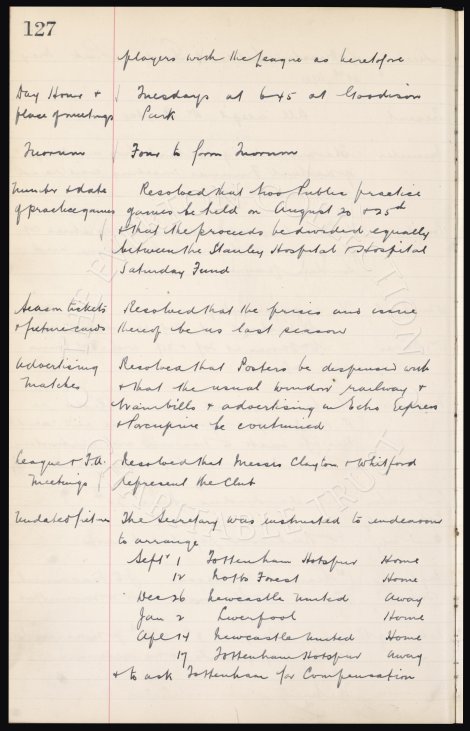 127
players with the League as heretofore
Day Hour & Tuesdays at 6.45 at Goodison
place of meetings Park
Quorum Four to form Quorum
Number & date Resolved that two Public practice
of practice games games be held on August 20 & 25th
& that the proceeds be divided equally
between the Stanley Hospital & Hospital
Saturday Fund
Season tickets Resolved that the prices and issue
& fixture cards thereof be as last season
Advertising Resolved that Posters be dispensed with
Matches & that the usual window railway &
trambills & advertising in Echo Express
& Porcupine be continued
League & F.A. Resolved that Messrs Clayton & Whitford
Meetings represent the Club
Undated fixtures The Secretary was instructed to endeavour
to arrange
Sept 1 Tottenham Hotspur Home
12 Notts Forest Home
Dec 26 Newcastle United Away
Jan 2 Liverpool Home
Apl 14 Newcastle United Home
17 Tottenham Hotspur Away
& to ask Tottenham for Compensation
THE EVERTON COLLECTION
CHARITABLE TRUST